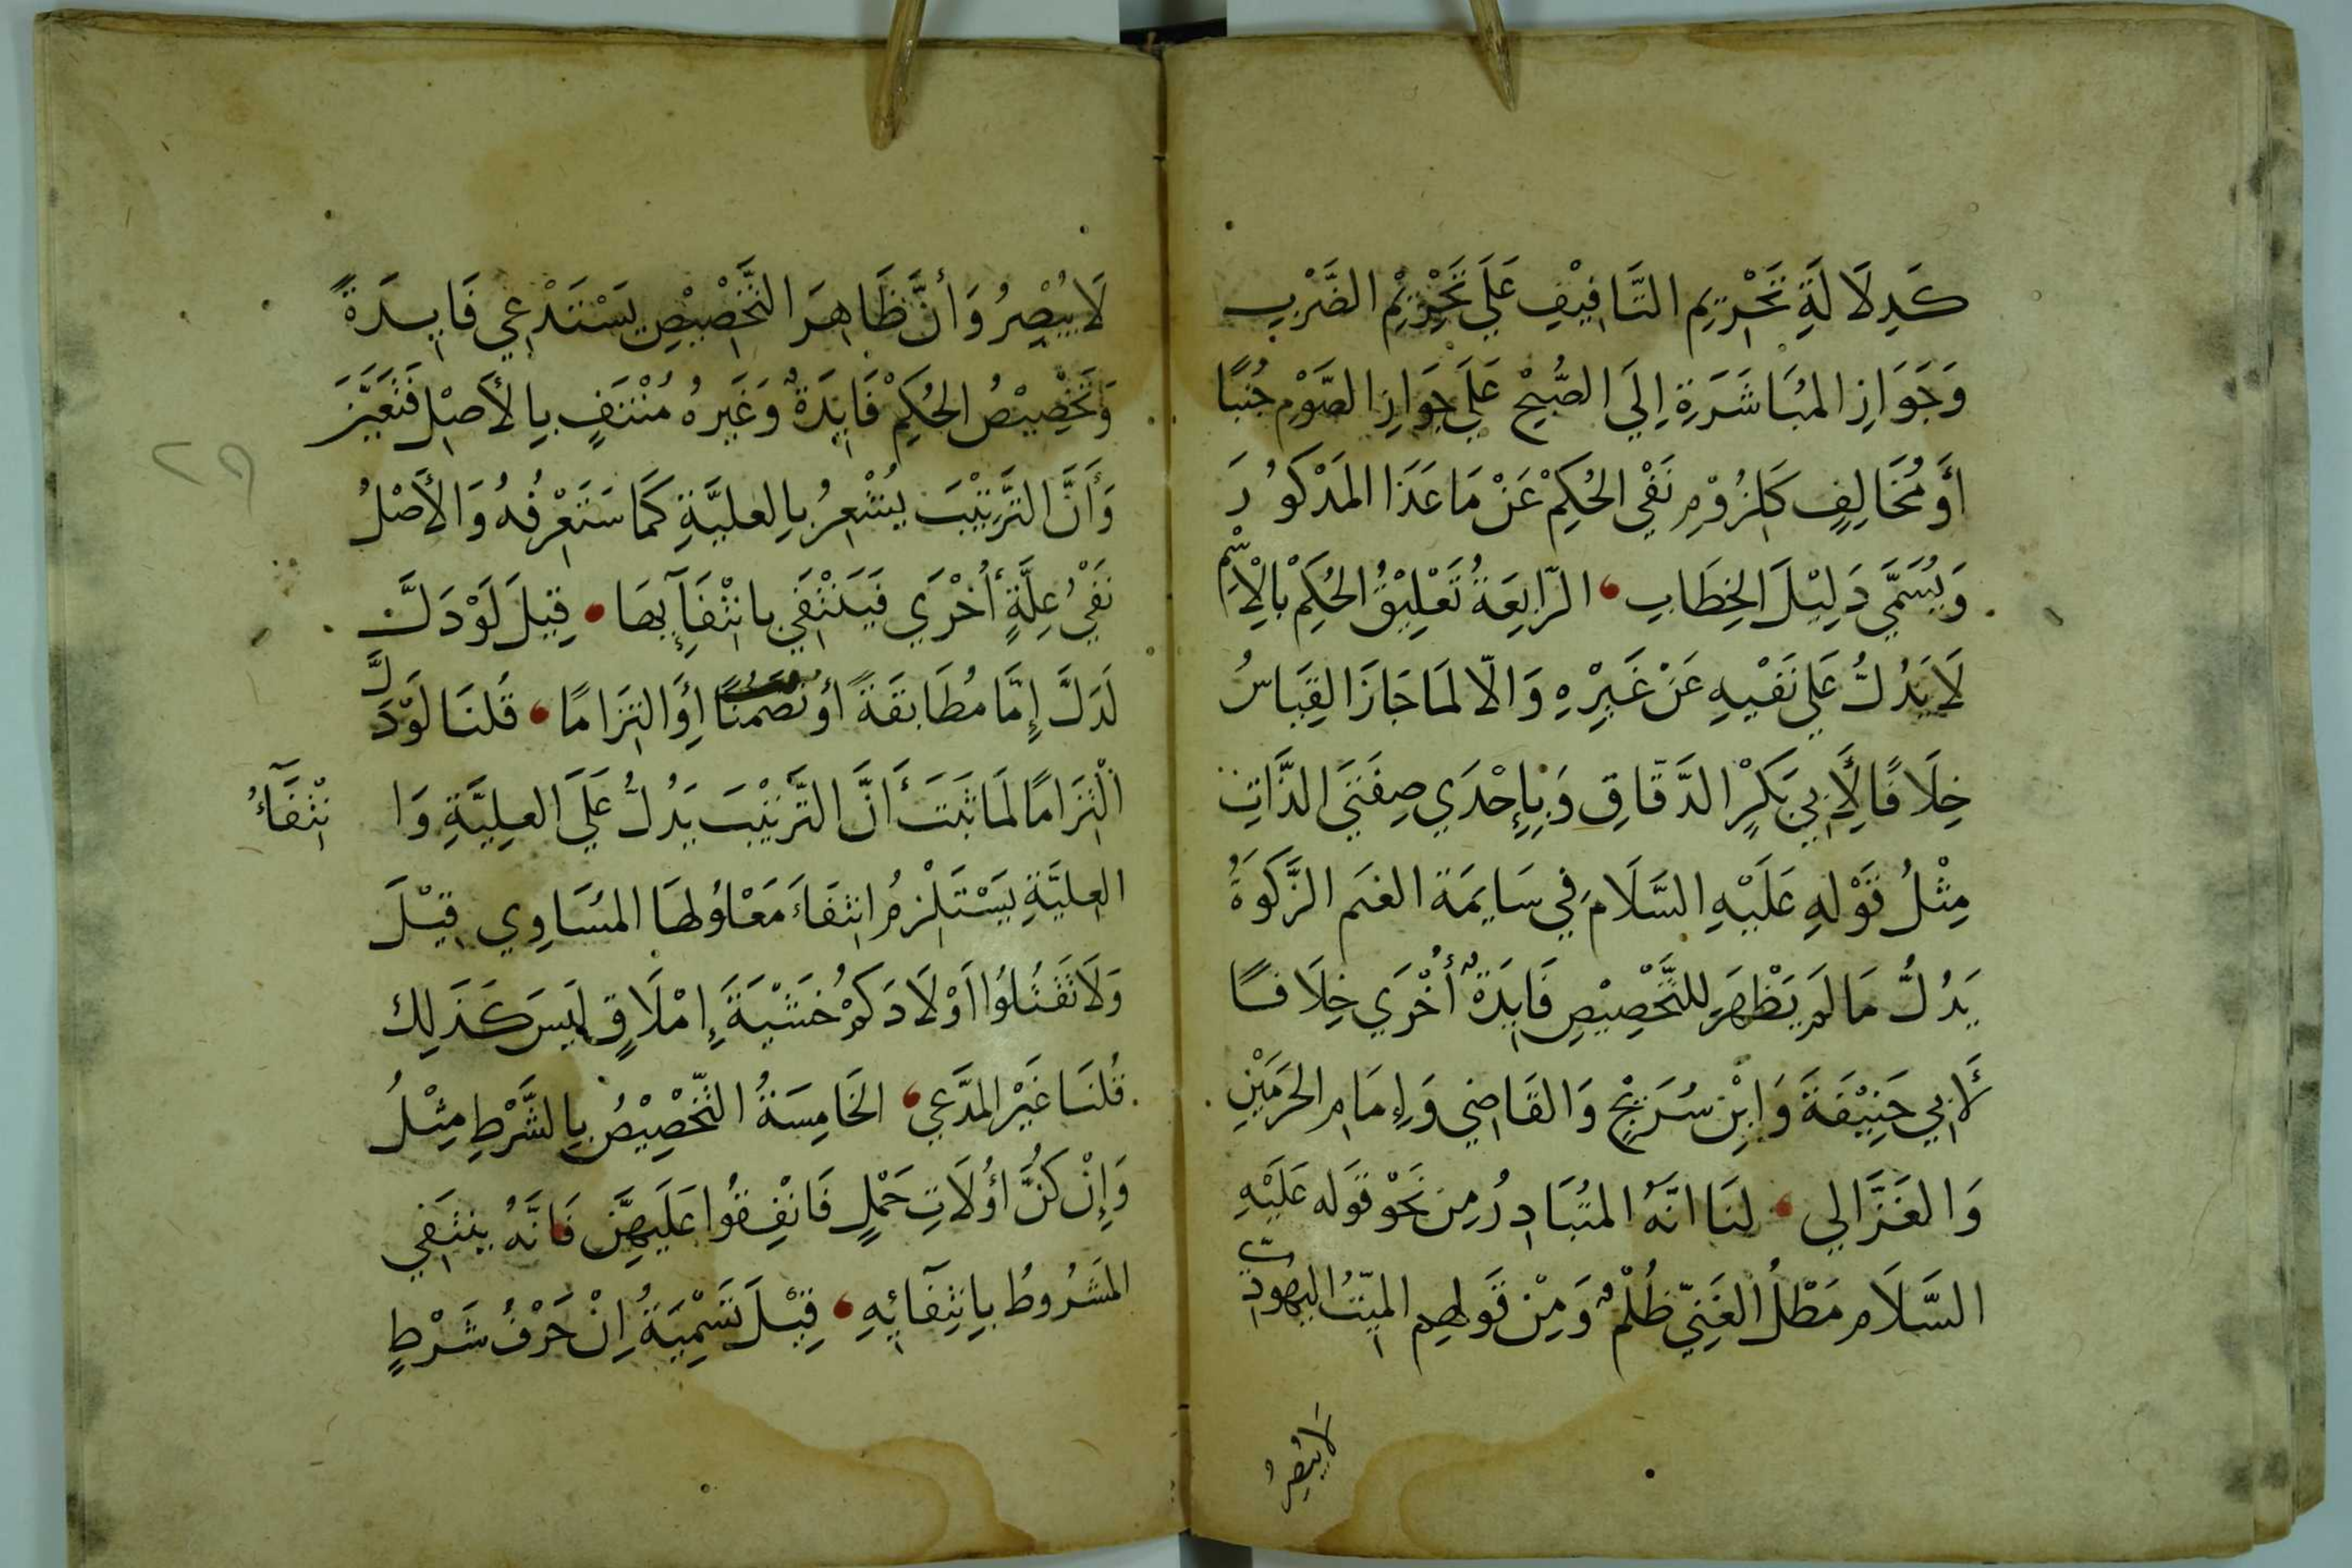 كَدِلَالَةِ تَحْرِيمِ التَّافِيْفِ عَلَى تَحْرِيْمِ الضَّرْبِ
وَجَوَازِ المُبَاشَرَةِ اِلَى الصُّبْحِ عَلَى جَوَازِ الصَّوْمِ جُنُبًا
أَو مُخَالِفٍ كَلُزُوْمِ نَفْيِ الحُكِمْ عَنْ مَا عَدَا المَذْكُورَ
وَيُسَمَّى دَلِيْلَ الخِطَابِ ، الرّابِعَةُ تَعْلِيْقُ الحُكِمْ بِالْاِسْمِ
لَا يَدُلُّ عَلَى نَفْيِهِ عَنْ غَيْرِهِ وَالّا لمَا جَازَ القِيَاسُ
خِلَافًا لِأَبِي بَكْرٍ الدَّقّاقِ وَبِإِحْدَي صِفَتَي الذَّاتِ
مِثْلُ قَوْلِهِ عَلَيْهِ السَّلَامِ فِي سَايِمَة الغنَم الزَّكَوةُ
يَدُلُّ مَا لَم يَظْهَر لِلتَّخْصِيْصِ فَايِدَةٌ أُخْرَي خِلَافًا
لأَبِي حَنِيْفَةَ وَابْنِ سُرَيْجٍ وَالقَاضِي وَإِمَامِ الحَرَمَيْنِ
وَالغَزَّالِي ، لنَا انَّهُ المتُبَادِرُ مِن نَحْو قَوله عَلَيْهِ
السَّلَام مَطْلُ الغَنِيّ ظُلْمٌ وَمِنْ قَولهِم الميّتُ اليَهُودِيّ
لَا يُبْصِرُ
لَا يُبْصِرُ وَأنَّ ظَاهِرَ التَّخْصِيْصِ يَسْتَدْعِي فَايِدَةً
وَتَخْصِيْصُ الحُكِمْ فَايِدَةٌ وَغَيرهُ مُنْتَفٍ بِالأَصْلِ فَتَعَيَّنَ
وَأَنَّ التَّرتِيْبَ يُشْعِرُ بِالعليَّةِ كَمَا سَتَعْرِفُهُ وَالأَصْلُ
نَفْيُ عِلَّةٍ أُخْرَي فَيَنْتَفِي بانْتِفَآئِهَا ، قِيْلَ لَوْ دَلَّ
لَدَلَّ إِمَّا مُطَابقَةً أو تَضَمُّنًا أَوِ التِزَامًا ، قَلنَا لَوْ دَلَّ
الْتِزَامًا لمَا ثَبَتَ أَنَّ التَّرتِيْبَ يَدُلُّ عَلَى العِلِيَّةِ وَا نْتِفَآءُ
العِليَّةِ يَسْتَلْزِمُ انتِفَاءَ مَعْلُولهَا المسَاوِي قِيْلَ
وَلَا تَقْتُلُوا اَوْلَادَكُمْ خَشْيَةَ إِمْلَاقٍ لَيسَ كَذَلِك
قُلنَا غَيْر المدَّعي ، الخَامِسَةُ التّخْصِيْصُ بِالشَّرْطِ مِثْلُ
وَإِنْ كُنَّ أُوْلَاتِ حَمْلٍ فَانْفِقُوا عَلَيهِنَّ فَانَّهُ ينتَفِي
المَشرُوطُ بِانتِفَآئِهِ ، قِيْلَ تَسْمِيَةُ اِنْ حَرْفُ شَرْطٍ
٢٩